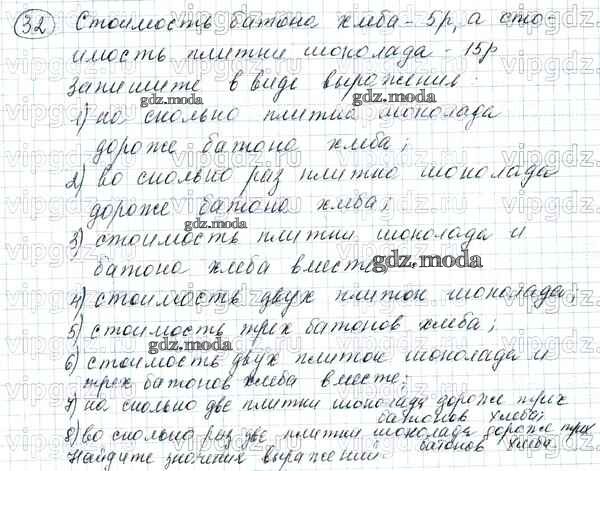 32 Стоимость батона хлеба - 5р, а сто-
имость плитки шоколада - 15р
Запишите в виде выражения:
1) на сколько плитка шоколада
дороже батона хлеба;
2) во сколько раз плитка шоколада
дороже батона хлеба;
3) стоимость плитки шоколада и
батона хлеба вместе
4) стоимость двух плиток шоколада;
5) стоимость трех батонов хлеба;
6) стоимость двух плиток шоколада и
трех батонов хлеба вместе;
7) на сколько две плитки шоколада дороже трех
батонов хлеба;
8) во сколько раз две плитки шоколада дороже трех
батонов хлеба.
Найдите значения выражений.
gdz.moda
gdz.moda
gdz.moda
gdz.moda
gdz.moda
gdz.moda